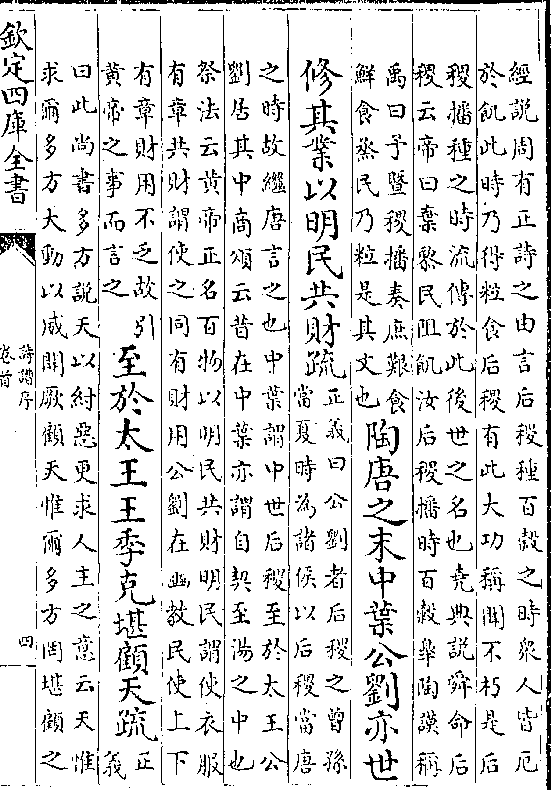 經說周有正詩之由言后稷種百穀之時衆人皆厄
於飢此時乃得粒食后稷有此大功稱聞不朽是后
稷播種之時流傳於此後世之名也堯典說舜命后
稷云帝曰棄黎民阻飢汝后稷播時百穀臯陶謨稱
禹曰予暨稷播奏庶艱食
鮮食烝民乃粒是其文也
陶唐之末中葉公劉亦世
修其業以明民共財疏
正義曰公劉者后稷之曾孫
當夏時為諸侯以后稷當唐
之時故繼唐言之也中葉謂中世后稷至於太王公
劉居其中商頌云昔在中葉亦謂自契至湯之中也
祭法云黄帝正名百物以明民共財明民謂使衣服
有章共財謂使之同有財用公劉在豳教民使上下
有章財用不乏故引
黄帝之事而言之
至於太王王季克堪顧天疏
正
義
曰此尚書多方說天以紂惡更求人主之意云天惟
求爾多方大動以威開厥顧天惟爾多方罔堪顧之
欽定四庫全書
詩譜序
卷首
四